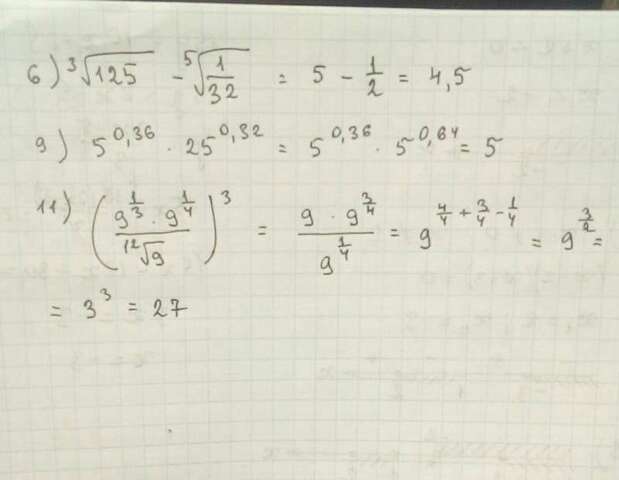 6) ³√125 - ⁵√(1/32) = 5 - 1/2 = 4,5
9) 5^0,36 · 25^0,32 = 5^0,36 · 5^0,64 = 5
11) ((9^(1/3) · 9^(1/4)) / ¹²√9)^3 = (9 · 9^(3/4)) / 9^(1/4) = 9^(4/4 + 3/4 - 1/4) = 9^(3/2) =
= 3^3 = 27